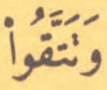 وَتَتَّقُواْ